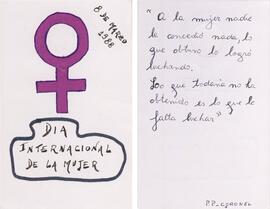 8 DE MARZO
1988
DIA
INTERNACIONAL
DE LA MUJER
"A la mujer nadie
le concedió nada, lo
que obtuvo lo logró
luchando.
Lo que todavía no ha
obtenido es lo que le
falta luchar"
P.P. CORONEL